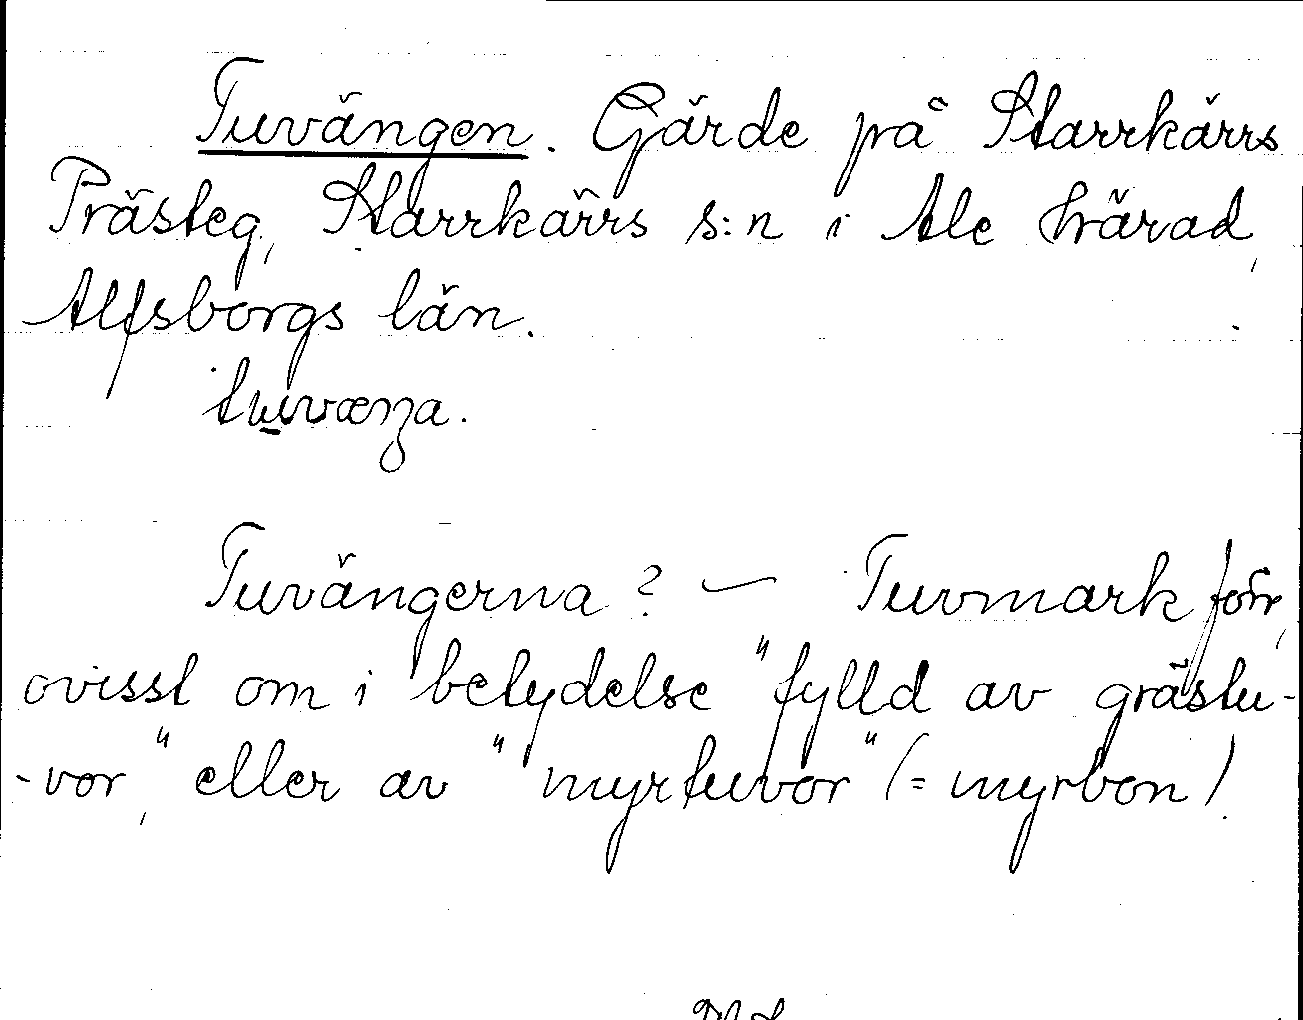 Tuvängen. Gärde på Starrkärrs
Prästeg, Starrkärrs s:n i Ale härad,
Alfsborgs län.
Tuvängerna? – Tuvmark förr,
ovisst om i betydelse "fylld av grästu-
-vor," eller av "myrtuvor" (= myrbon).